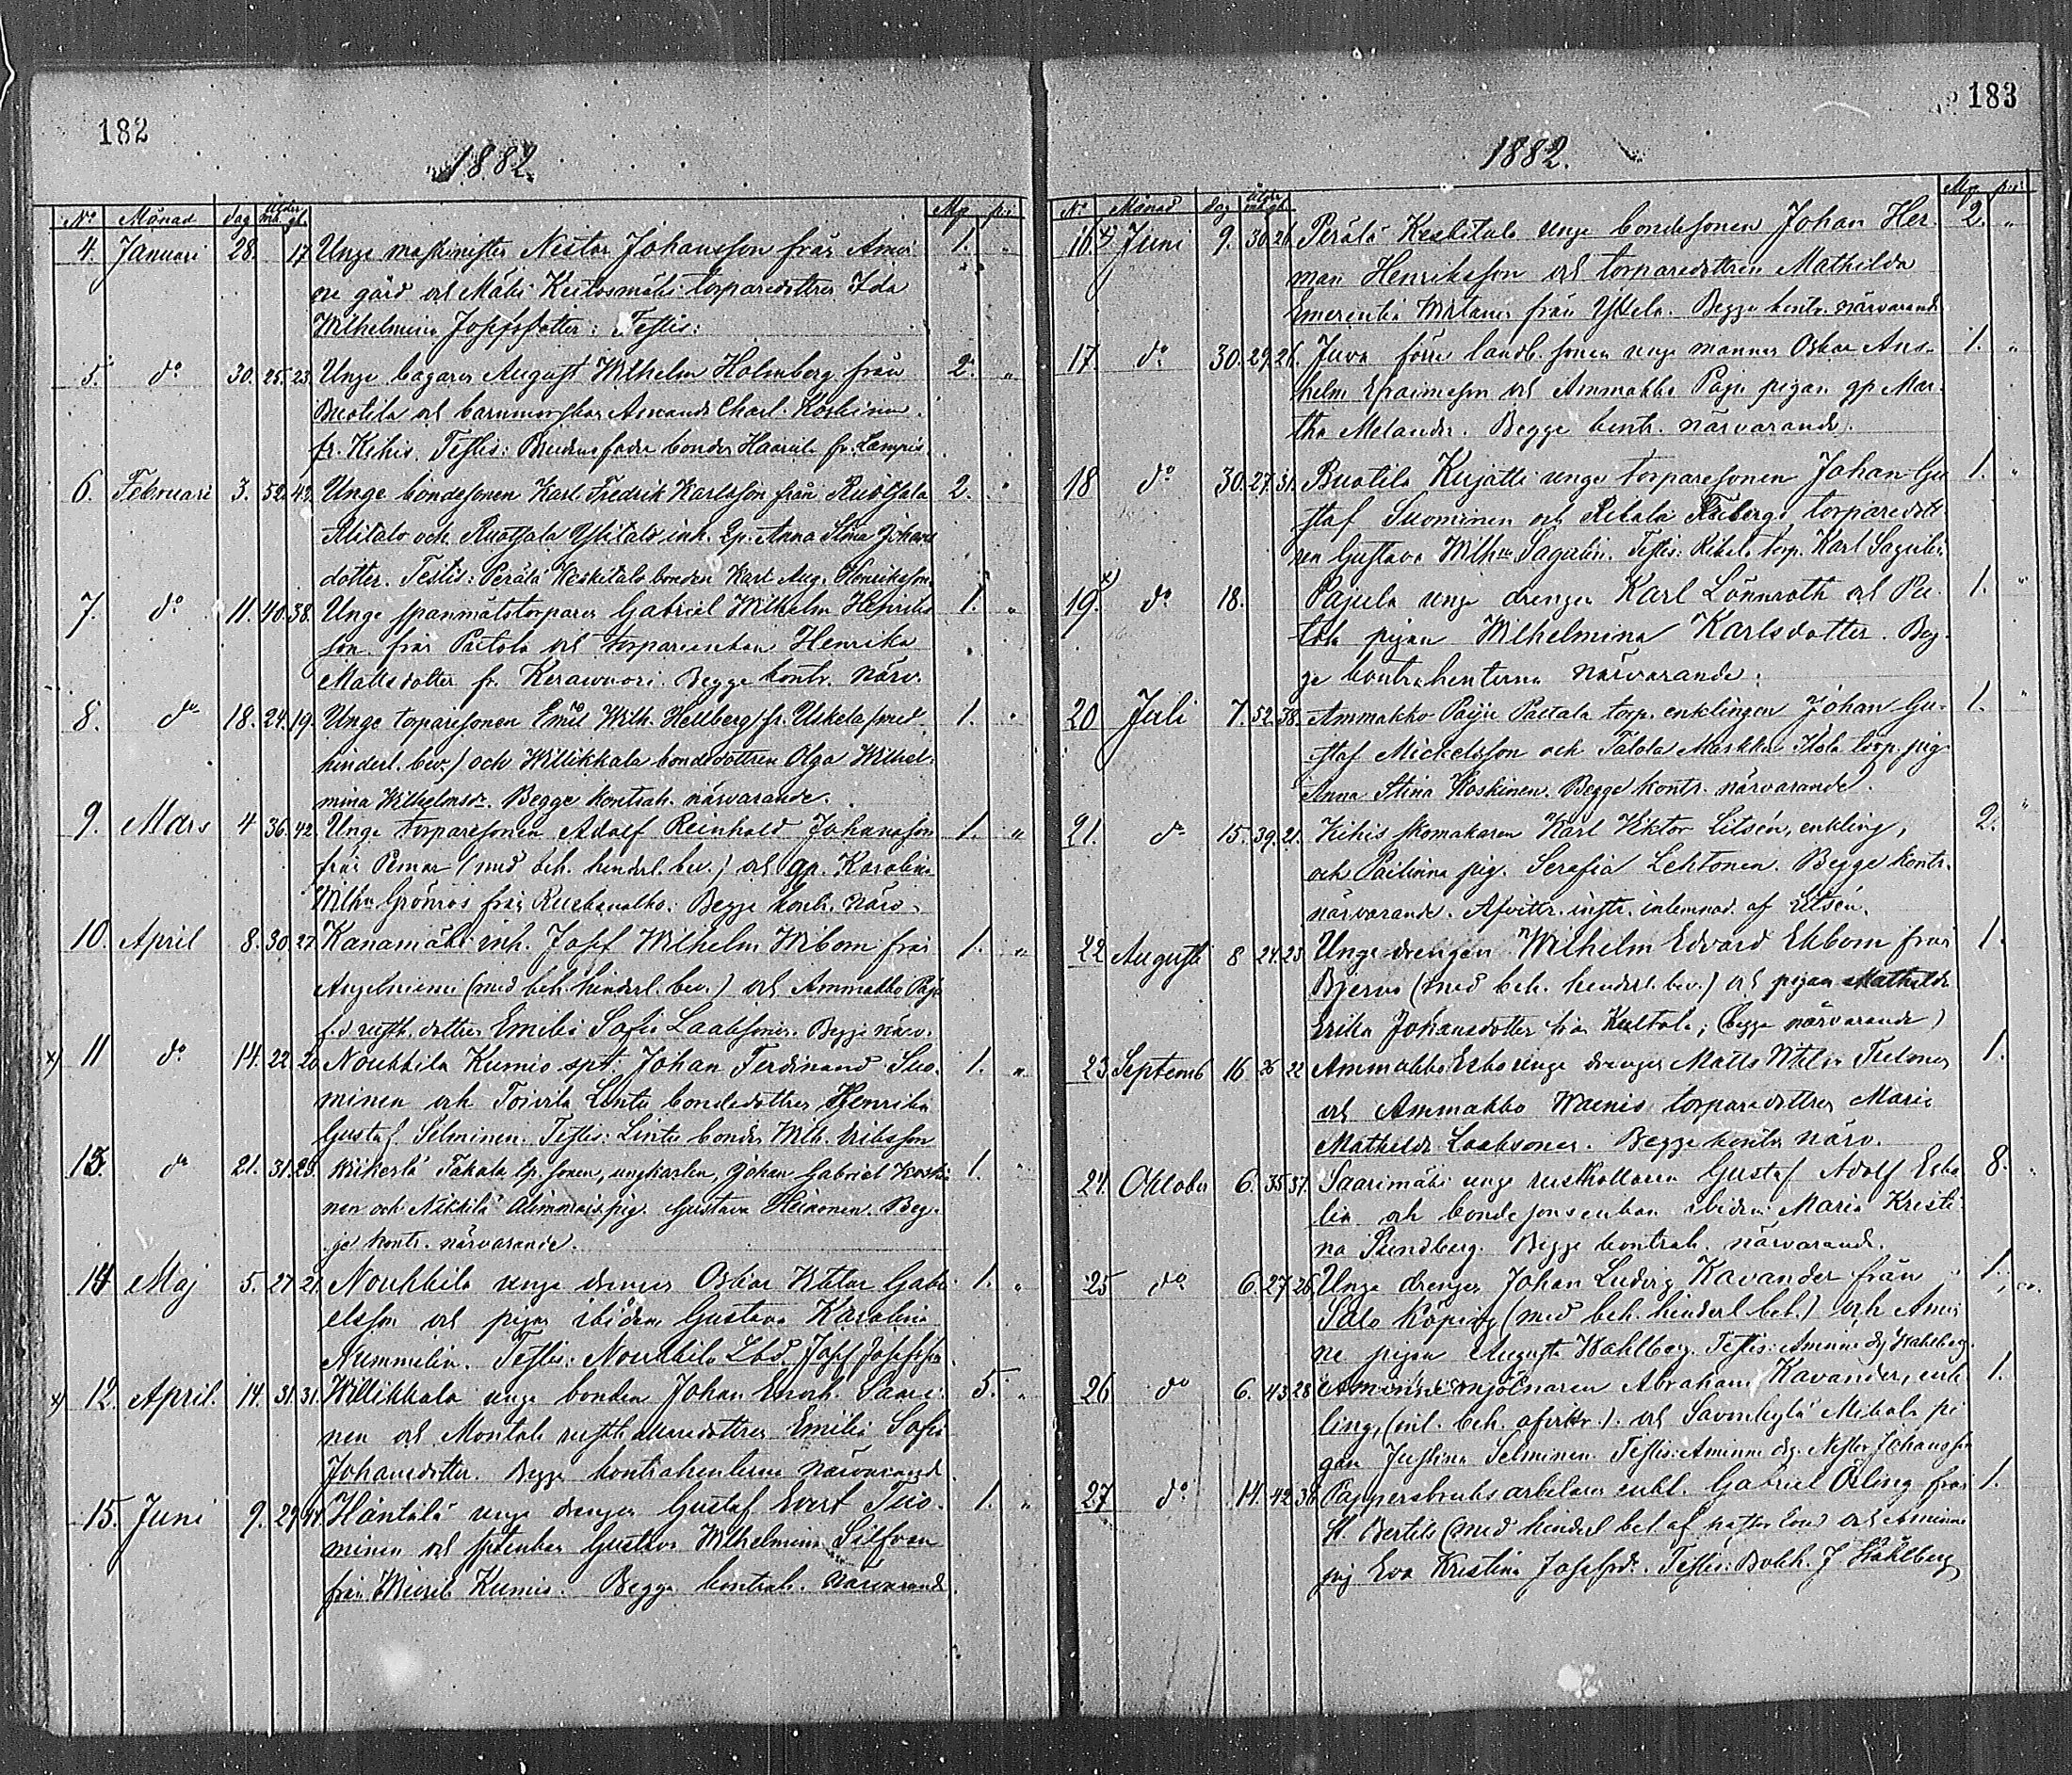 182
1882.
No Månad dag Ålder mk. qk. Mk p:i
4. Januari 28. 17 Unge maskinisten Nestor Johansson från Ami- 1. "
ne gård och Mäki torparedottren Ida
Wilhelmina Josefsdotter: Testis:
5. do 30. 25. 23. Unge bagaren August Wilhelm Holmberg från 2. "
Buotila och barnmorskan Amanda Charl. Koskinen
fr. Kihis. Testis: Brudens fader bonden Haarla fr. Lampis.
6. Februari 3. 52. 42. Unge bondesonen Karl Fredrik Karlsson från Ruotsala 2. "
Alitalo och Ruotsala Ylitalo inh. Qp. Anna Stina Johans
dotter. Testis: Perälä Keskitalo bonden Karl Aug. Henriksson.
7. do 11. 40. 38. Unge spanmålstorparen Gabriel Wilhelm Henriks 1. "
son från Paetola och torpareenkan Henrika
Mattsdotter fr. Kerawuori. Begge kontr. närv.
8. do 18. 24. 19. Unge torparesonen Emil Wilh. Hellberg fr. Uskela (med 1. "
hinderl. bev.) och Willikkala bondedottren Olga Wilhel-
mina Wilhelmsdr. Begge kontrah. närvarande.
9. Mars 4 36. 42. Unge torparesonen Adolf Reinhold Johansson 1. "
från Pemar (med beh. hinderl. bev.) och Qp. Karolina
Wilhna Grönros från Begge kontr. närv.
10. April 8. 30 27. Kanamäki inh. Josef Wilhelm Wibom från 1. "
Angelniemi (med beh. hinderl. bev.) och Ammakko Paju
f.d rusth. dottren Emilia Sofia Laaksonen. Begge närv.
x) 11 do 14. 22. 20 Noukkila Kumio spt. Johan Ferdinand Suo- 1. "
minen och Toivila Lintu bondedottren Henrika
Gustaf Selminen. Testis: Lintu bonden Wilh. Eriksson
13. do 21. 31. 29. Wikerlä Takala tp. sonen, ungkarlen, Johan Gabriel Koski- 1. "
nen och Nikkilä Alimmais pig. Gustava Heinonen. Beg-
ge kontr. närvarande.
14 Maj 5. 27 21. Noukkila unge drengen Oskar Viktor Gabri- 1. "
elsson och pigan ibidem Gustava Karolina
Nummelin. Testis: Noukkila Lbd. Josef Josefsson.
x) 12. April. 14. 31. 31. Willikkala unge bonden Johan Enoch Saari- 5. "
nen och Montola rusthållaredottren Emilia Sofia
Johansdotter. Begge kontrahenterne närvarand
15. Juni 9. 29 44. Häntälä unge drengen Gustaf Evert Tuo- 1. "
minen och sptenkan Gustava Wilhelmina Silfvan
från Kumio. Begge kontrah. närvarand

183
1882.
No Månad dag Ålder mk. qk. Mk p:i
16 x) Juni 9. 30. 26. Perälä Keskitalo unge bondesonen Johan Her- 2. "
man Henriksson och torparedottren Mathilda
Emerentia från Yskela. Begge kontr. närvarand
17. do 30. 29. 26. Juva förre landb. sonen unge mannen Oskar Ans- 1. "
helm Efraimsson och Ammakko Paju pigan qp Mar-
tha Melander. Begge kontr. närvarande.
18 do 30. 27. 31. Buotila Kujatti unge torparesonen Johan Gu 1. "
staf Suominen och Rekala Friberga torparedott
ren Gustava Wilhna Sagulin. Testis: Rekala torp. Karl Sagulin
19. x) do 18. Pajula unge drengen Karl Lönnroth och Pu- 1. "
tola pigan Wilhelmina Karlsdotter. Beg-
ge kontrahenterna närvarande.
20 Juli 7. 52. 38. Ammakko Paiju Paltala torp. enklingen Johan Gu- 1. "
staf Mickelsson och Talola Markkula torp. pig
Anna Stina Koskinen. Begge kontr. närvarande.
21. do 15. 39. 21. Kihis skomakaren Karl Viktor Litsén, enkling, 2. "
och Pailinna pig. Serafia Lehtonen. Begge kontr.
närvarande. Afvittr. instr. inlemnad af Litsén.
22 Augusti 8 24. 23 Unge drengen Wilhelm Edvard Ekbom från 1.
Bjerno (med beh. hinderl. bev.) och pigan Mathilda
Erika Johansdotter från Kultola; (begge närvarande)
23 Septemb 16 26 22 Ammakko Esko unge drengen Matts Viktor Tulonen 1.
och Ammakko Wainio torparedottren Maria
Mathilda Laaksonen. Begge kontr närv.
24. Oktober 6. 35 37. Saarimäki unge rusthållaren Gustaf Adolf Eske- 8. "
lin och bondesonsenkan ibidem Maria Kristi-
na Sundberg. Begge kontrah. närvarand.
25 do 6. 27 26. Unge drengen Johan Ludvig Kavander från 1.
Salo köping (med beh. hinderl. beh.) och Ami-
ne pigan Augusta Wahlberg. Testis: Aminne drg Wahlberg.
26 do 6. 43 28 Aminne mjölnaren Abraham Kavander, enk- 1.
ling, (inl. beh. afvittr.) och Savonkylä Mikola pi
gan Justina Selminen. Testis: Aminne drg. Nestor Johansson
27 do 14. 42 38. Pappersbruks arbetaren enkl. Gabriel Öling från 1.
St. Bertils (med hinderl bet. af pastor loci) och Aminne
pig Eva Kristina Josefsdr. Testis: Bokh. J Ståhlberg